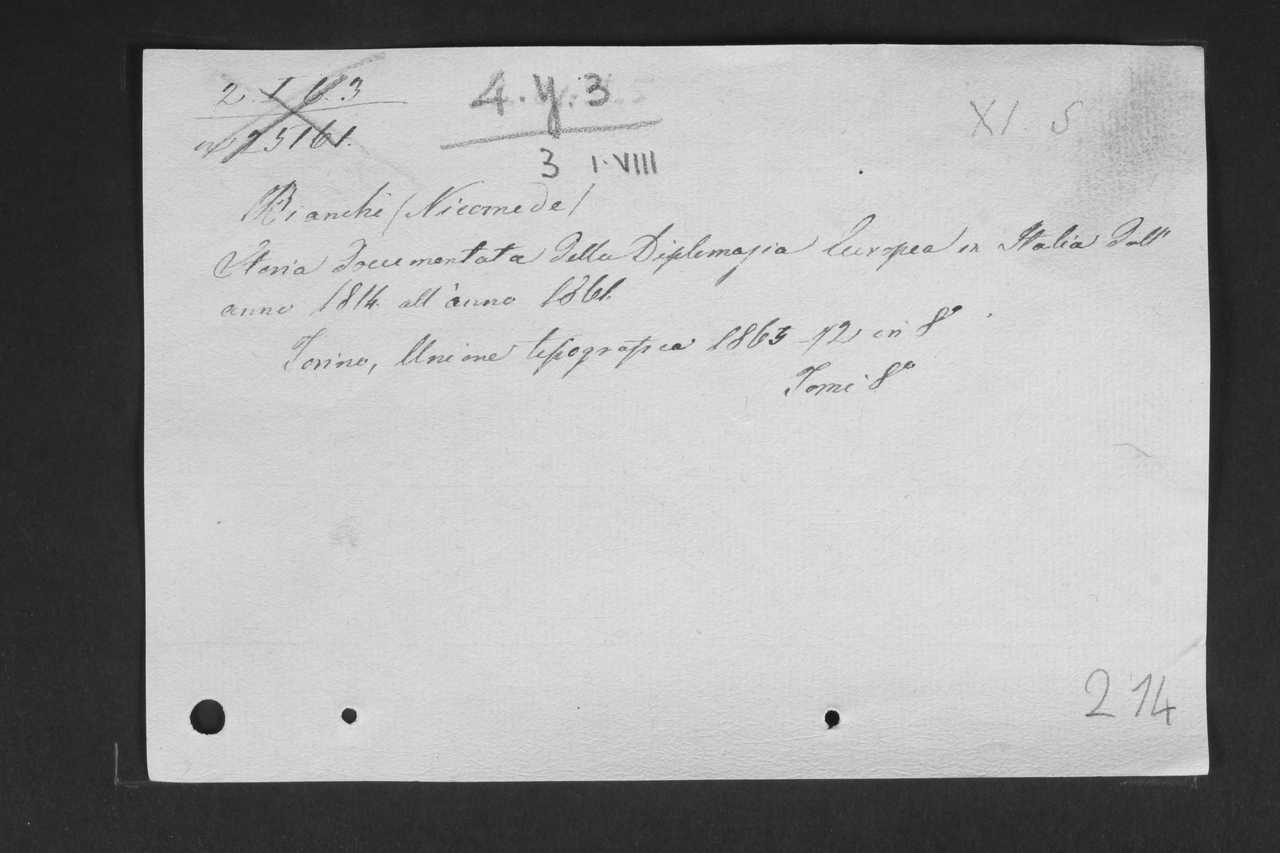 2. I. 6. 3
25161.
4. y. 3
3 I-VIII
XI. S
Bianchi (Nicomede)
Storia documentata della Diplomazia Europea in Italia dall'
anno 1814 all'anno 1861.
Torino, Unione tipografica 1865-72 in 8°
Tomi 8°
214